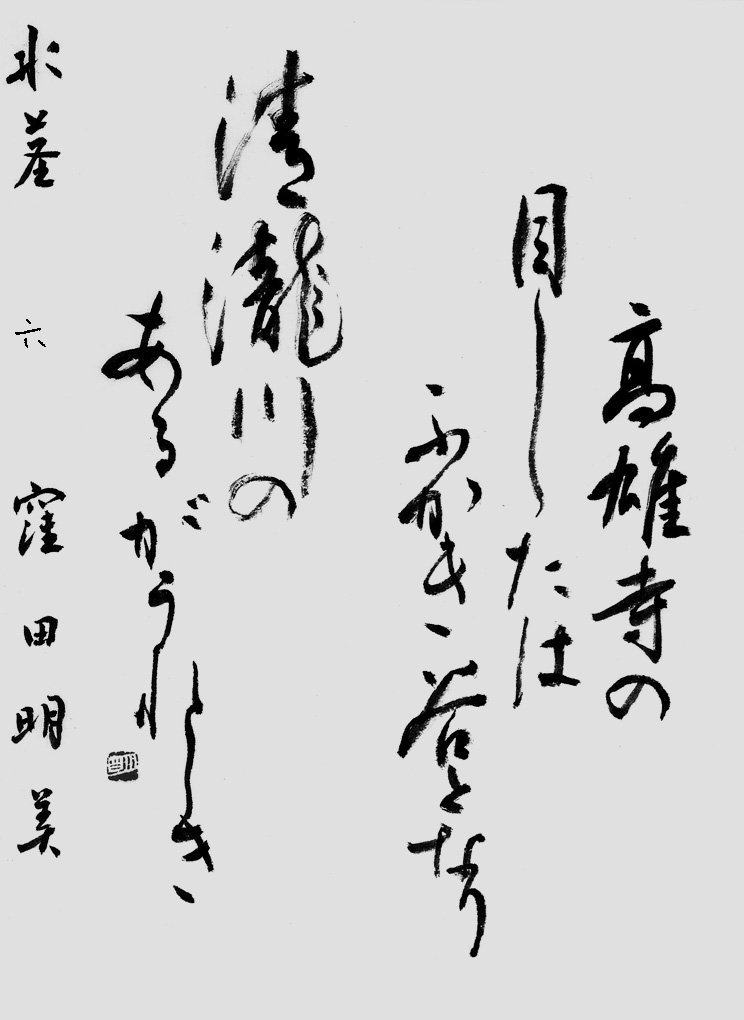 高雄寺の
目したは
ふかき谷となり
清瀧川の
あるがうれ
しき
水茎 六 窪田明美